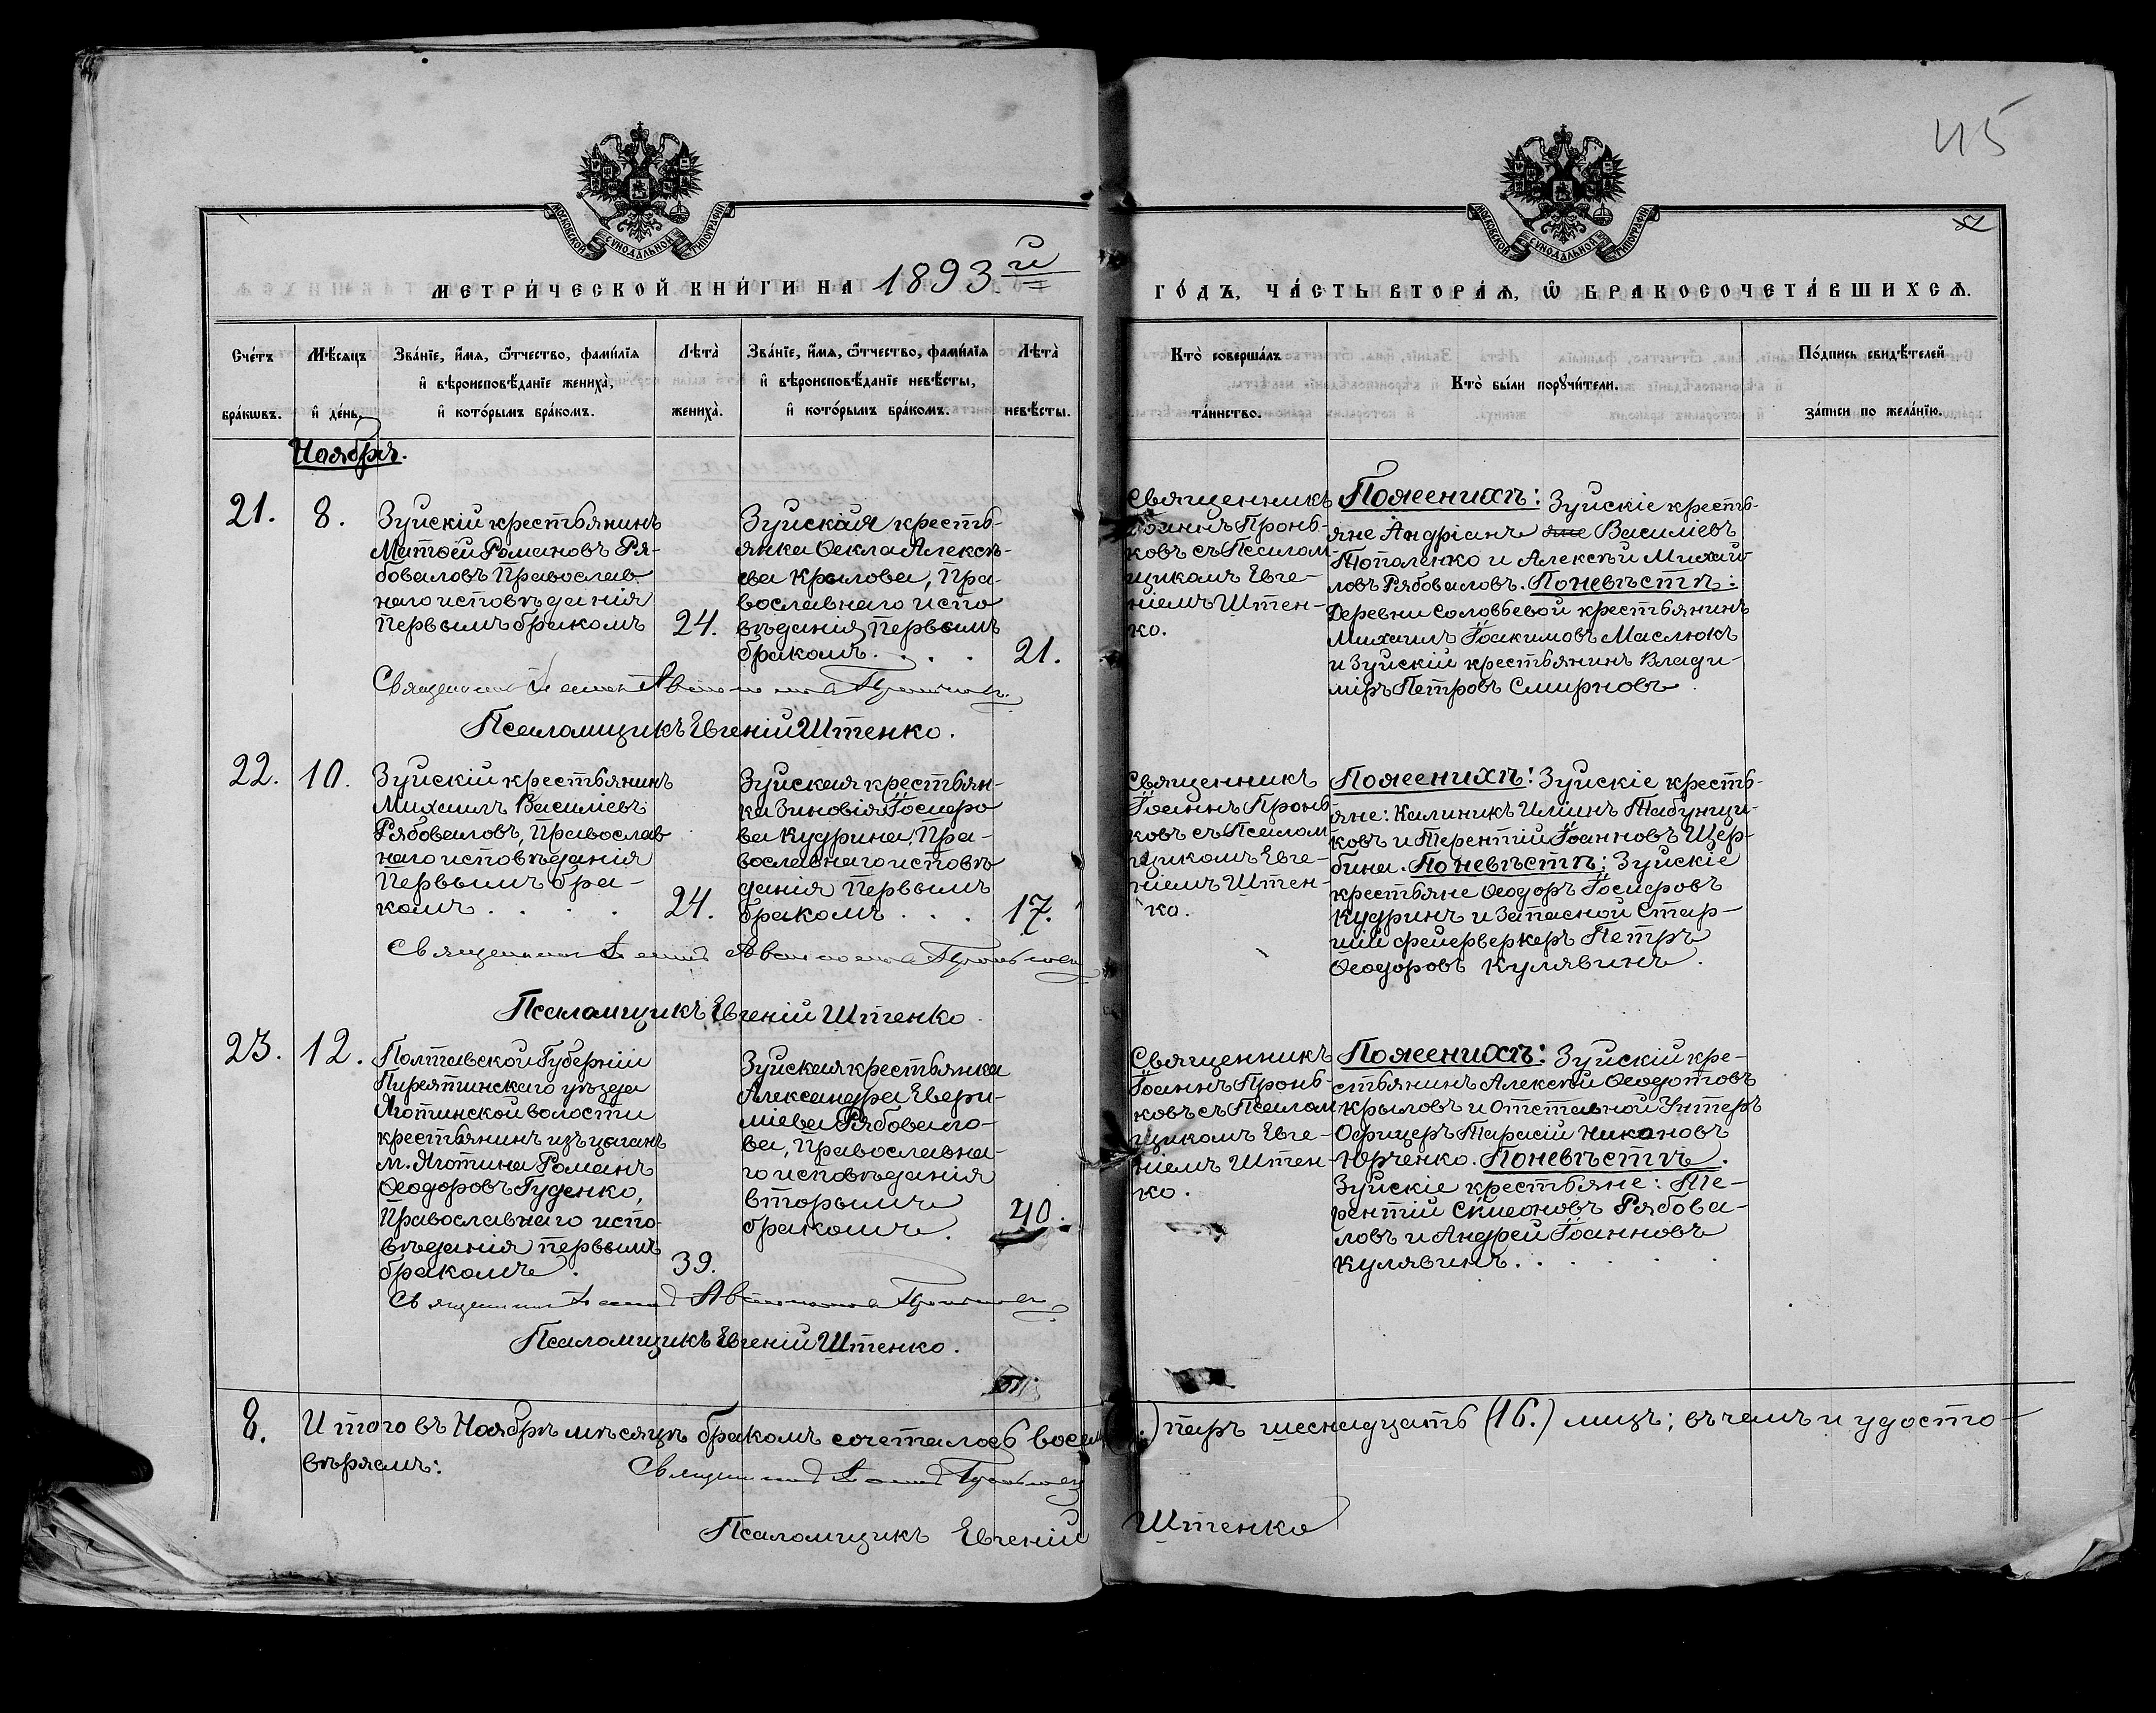 45
МОСКОВСКОЙ СѴНОДАЛЬНОЙ ТИПОГРАФІИ
МОСКОВСКОЙ СѴНОДАЛЬНОЙ ТИПОГРАФІИ
МЕТРИ́ЧЕСКОЙ КНИ́ГИ НА 1893 й
ГО́ДЪ, ЧА́СТЬ ВТОРА́Ѧ, Ѽ БРАКОСОЧЕТА́ВШИХСѦ.
Сче́тъ
бра́кѡвъ.
Мѣ́сѧцъ
и҆ де́нь.
Зва́нїе, и҆́мѧ, ѻ҆́тчество, фами́лїѧ
и҆ вѣроисповѣ́данїе жениха̀,
и҆ кото́рымъ бра́комъ.
Лѣта̀
жениха̀.
Зва́нїе, и҆́мѧ, ѻ҆́тчество, фами́лїѧ
и҆ вѣроисповѣ́данїе невѣ́сты,
и҆ кото́рымъ бра́комъ.
Лѣта̀
невѣ́сты.
Кто̀ соверша́лъ
та́инство.
Кто̀ бы́ли порꙋчи́тели.
По́дпись свидѣ́телей
за́писи по жела́нїю.
Ноябрь.
21.
8.
Зуйскій крестьянинъ
Матѳей Романовъ Ря-
боваловъ Православ
наго исповѣданія
Первымъ бракомъ
24.
Зуйская кресть-
янка Ѳекла Алексѣ-
ева Крылова, Пра-
вославнаго испо
вѣданія, Первымъ
бракомъ. . . .
21.
Священникъ
Іоаннъ Пронь-
ковъ съ Псалом-
щикомъ Евге-
ніемъ Штен-
ко.
По женихѣ: Зуйскіе кресть-
яне Андріанъ яне Василіевъ
Тополенко и Алексѣй Михай
ловъ Рябоваловъ. По невѣстѣ:
Деревни Соловьевой крестьянинъ
Михаилъ Іоакимовъ Маслюкъ
и Зуйскій крестьянинъ Влади-
міръ Петровъ Смирновъ.
Священникъ Іоаннъ Проньковъ
Псаломщикъ Евгеній Штенко.
22.
10.
Зуйскій крестьянинъ
Михаилъ Василіевъ
Рябоваловъ, Православ
наго исповѣданія
Первымъ бра-
комъ . . . .
24.
Зуйская крестьян-
ка Зиновія Іосифо
ва Кудрина, Пра-
вославнаго исповѣ
данія Первымъ
бракомъ . . .
17.
Священникъ
Іоаннъ Пронь-
ковъ съ Псалом-
щикомъ Евге-
ніемъ Штен-
ко.
По женихѣ: Зуйскіе кресть-
яне: Калиникъ Иліинъ Табунщи-
ковъ и Терентій Іоанновъ Щер-
бина. По невѣстѣ: Зуйскіе
крестьяне Ѳеодоръ Іосифовъ
Кудринъ и Запасной Стар-
шій фейерверкеръ Петръ
Ѳеодоровъ Кулявинъ.
Священникъ Іоаннъ Проньковъ
Псаломщикъ Евгеній Штенко.
23.
12.
Полтавской Губерніи
Пирятинскаго уѣзда
Яготинской волости
крестьянинъ изъ цыганъ
м. Яготина Романъ
Ѳеодоровъ Гуденко,
Православнаго испо-
вѣданія первымъ
бракомъ .
39.
Зуйская крестьянка
Александра Евфи-
міева Рябовало-
ва, Православна-
го исповѣданія
вторымъ
бракомъ.
40.
Священникъ
Іоаннъ Пронь-
ковъ съ Псалом
щикомъ Евге-
ніемъ Штен-
ко.
По женихѣ: Зуйскій кре-
стьянинъ Алексѣй Ѳеодотовъ
Крыловъ и отставной Унтеръ
Офицеръ Тарасій Никоновъ
Юрченко. По невѣстѣ.
Зуйскіе крестьяне: Те-
рентій Симеоновъ Рябова-
ловъ и Андрей Іоанновъ
Кулявинъ. . . . .
Священникъ Іоаннъ Проньковъ
Псаломщикъ Евгеній Штенко.
8.
Итого въ Ноябрѣ мѣсяцѣ бракомъ сочеталось восем .) паръ шеснадцать (16.) лицъ; въ чемъ и удосто-
вѣряемъ:
Священникъ Іоаннъ Проньковъ
Псаломщикъ Евгеній Штенко